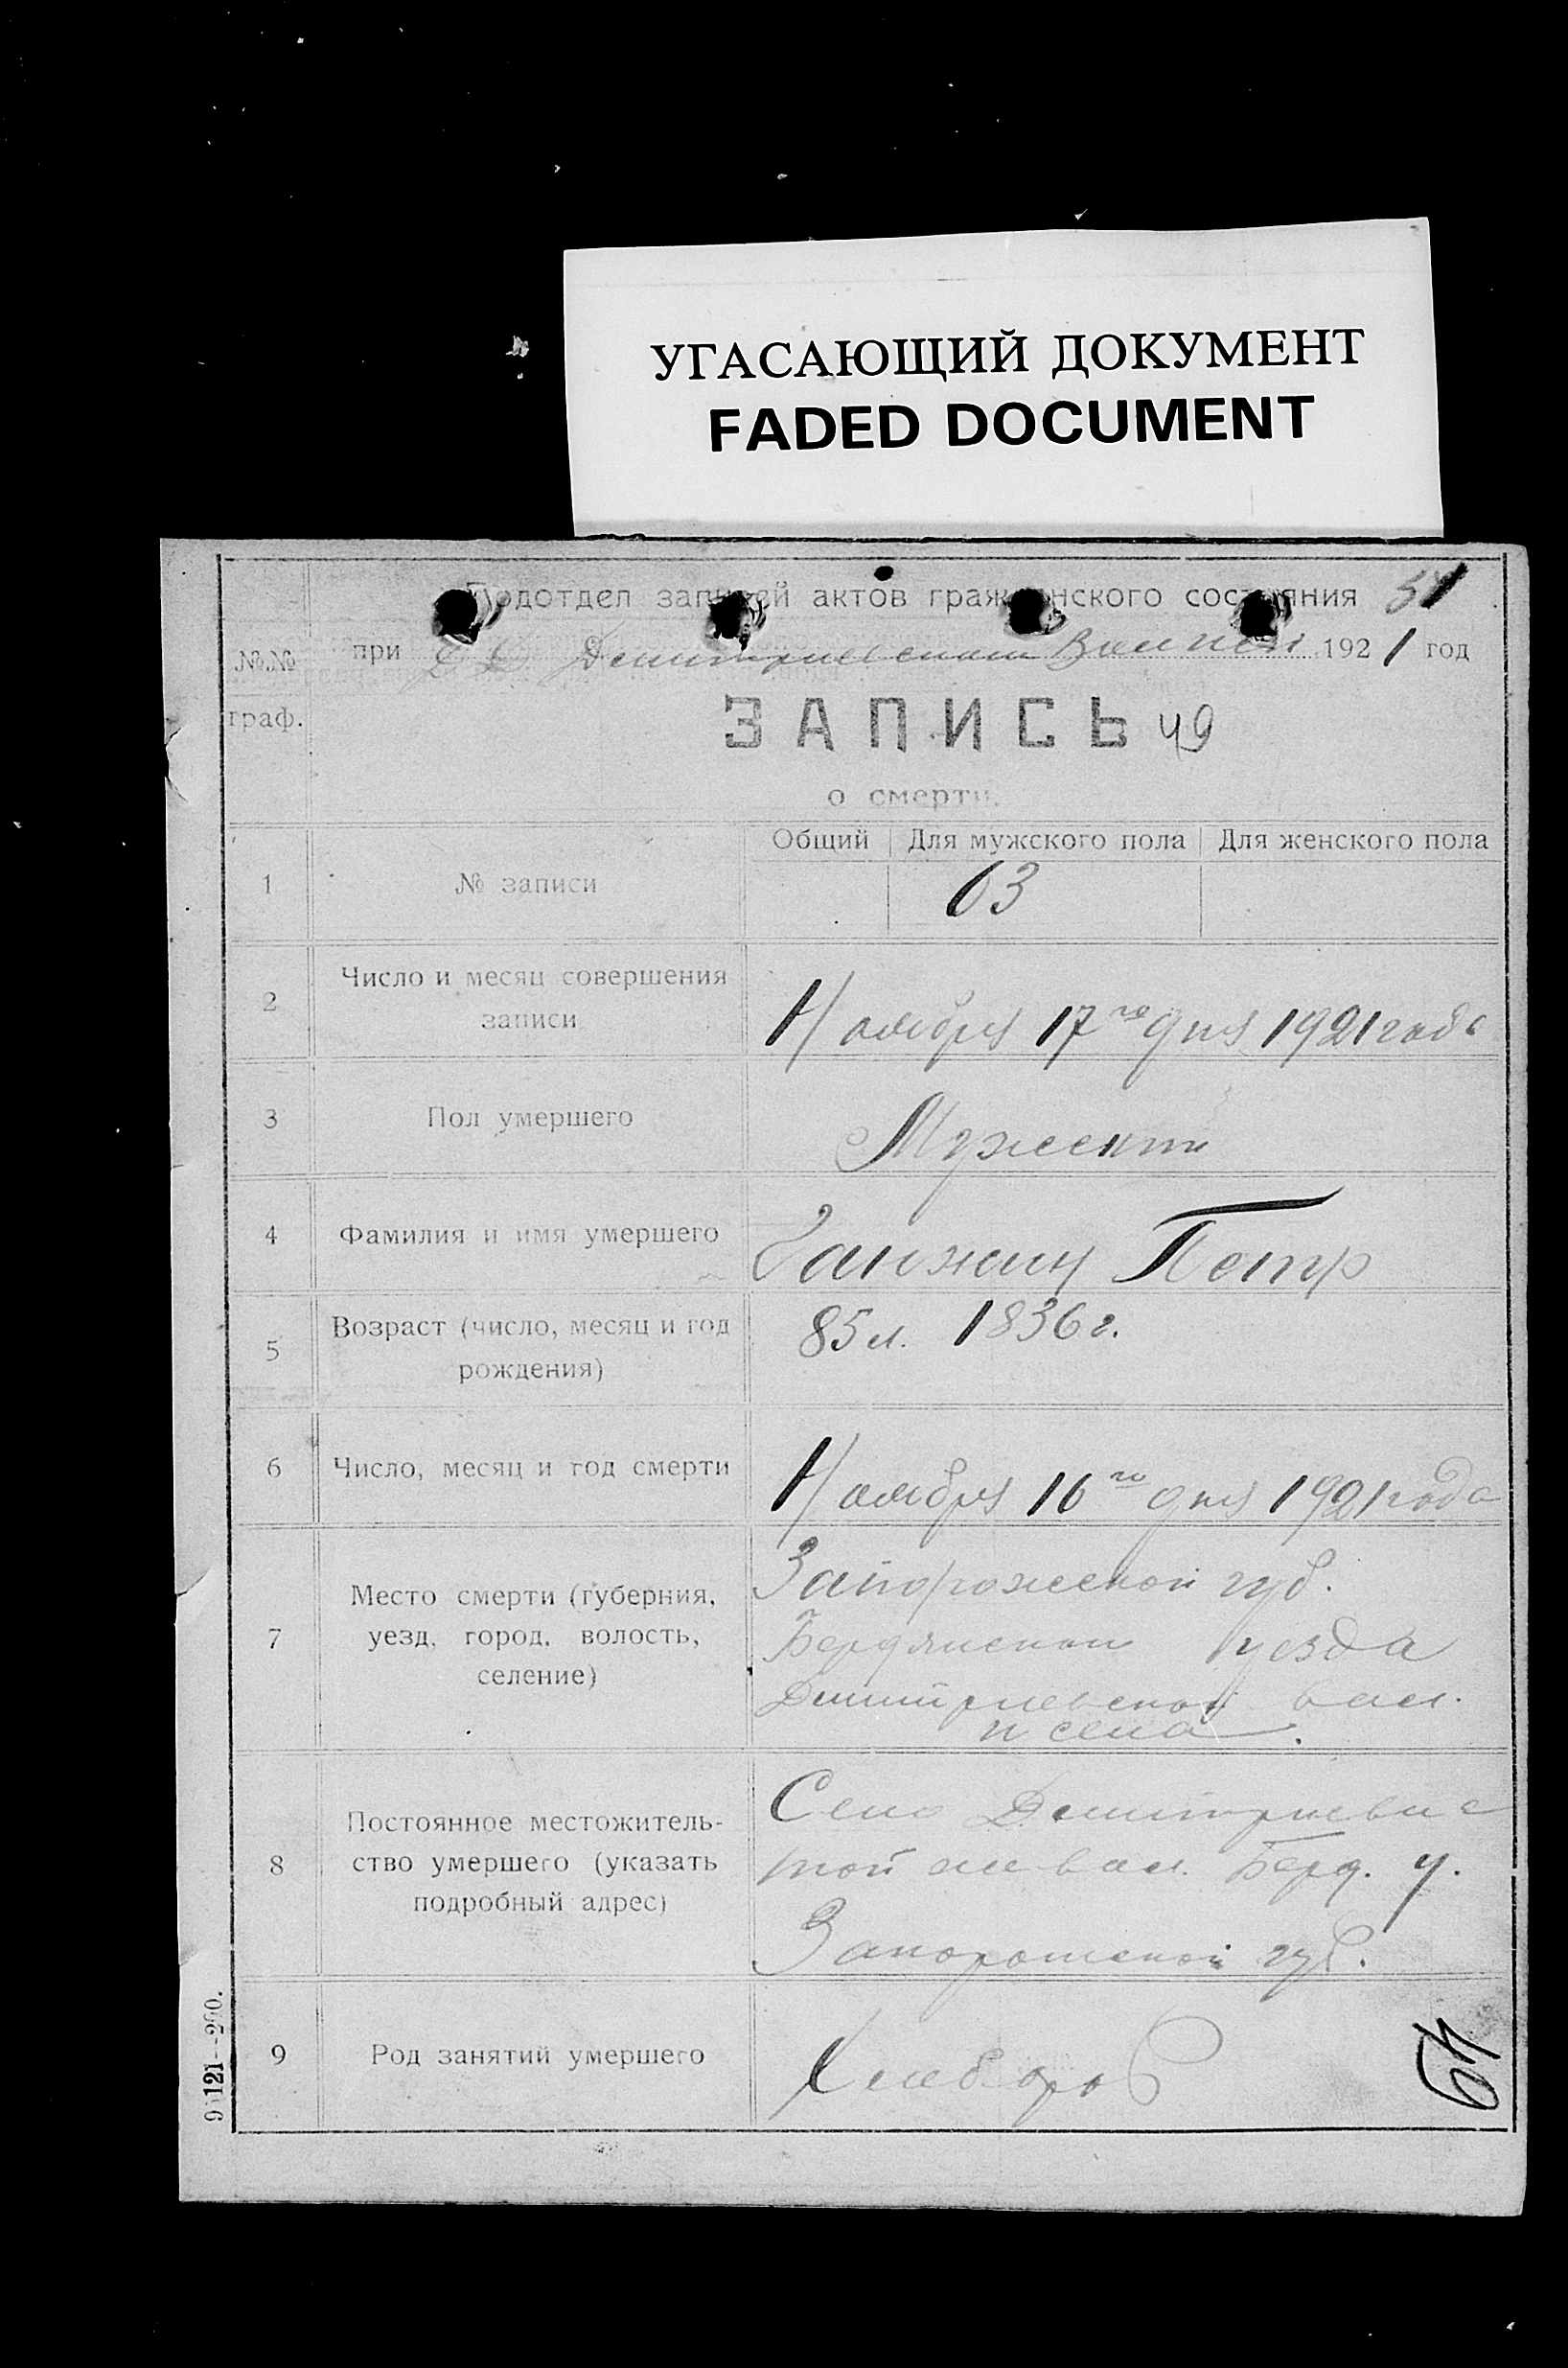 УГАСАЮЩИЙ ДОКУМЕНТ
FADED DOCUMENT
Подотдел записей актов гражданского состояния
№.№ граф.
при Дмитриевском 1921 год
ЗАПИСЬ 49
о смерти.
Общий Для мужского пола Для женского пола
1 № записи 63
2 Число и месяц совершения
записи
Ноября 17го дня 1921 года
3 Пол умершего Мужской
4 Фамилия и имя умершего Ганжин Петр
5 Возраст (число, месяц и год
рождения)
85 л. 1836 г.
6 Число, месяц и год смерти Ноября 16го дня 1921 года
7 Место смерти (губерния,
уезд, город, волость,
селение)
Запорожской губ.
Бердянского уезда
Дмитриевской вол.
и села.
8 Постоянное местожитель-
ство умершего (указать
подробный адрес)
Село Дмитриевка
той же вол. Берд. у.
Запорожской губ.
9 Род занятий умершего Хлебороб
64